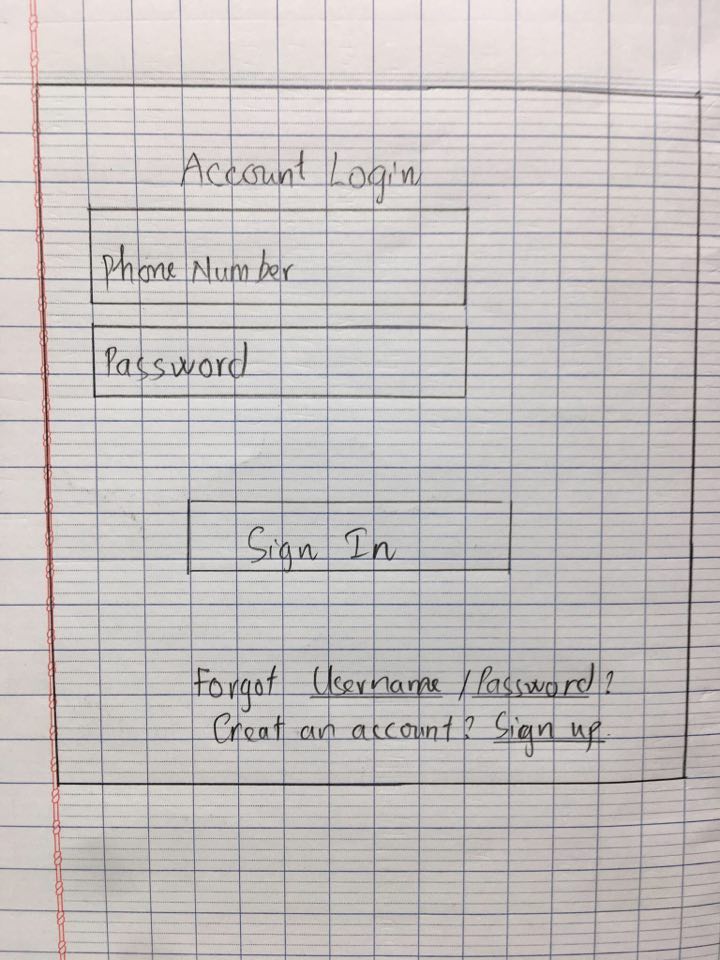 Account Login
Phone Number
Password
Sign In
Forgot Username / Password?
Creat an account? Sign up.